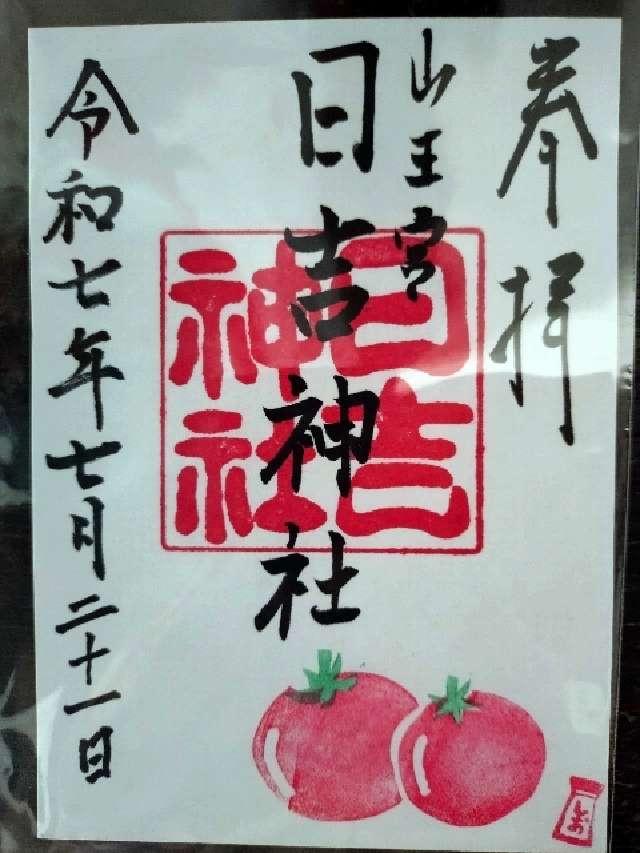 奉拝
山王宮
日吉神社
日吉
神社
令和七年七月二十一日